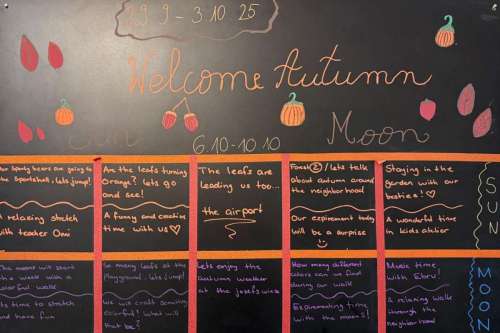 29.9-3.10.25
Welcome Autumn
Sun
Moon
6.10-10.10
Our sporty bears are going to
the Sportshall, lets jump!
A relaxing stretch
with teacher Omi
Are the leafs turning
Orange? lets go
and see!
A funny and creative
time with us
The leafs are
leading us too...
the airport
Forest / lets talk
about autumn around
the neighborhood
Our expirement today
will be a surprise
Staying in the
garden with our
besties!
A wonderful time
in kids atelier
SUN
This moon will start
the week with a
colorful walk
Its time to stretch
and have fun
So many leafs at the
Playground, lets jump!
We will craft something
colorful! What will
that be?
Lets enjoy the
autumn weather
at the josefswiese
How many different
colors can we find
during our walk
Expirementing time
with the moons!
Music time
with Ebru!
A relaxing walk
through the
neighborhood
MOON